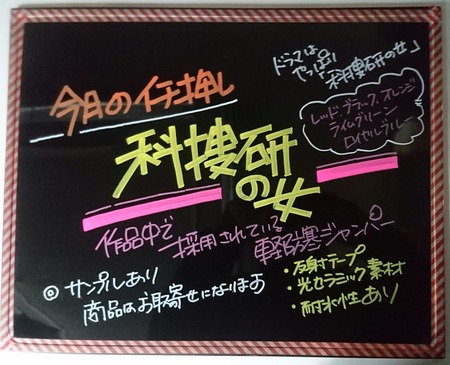 今日のイチ押し
ドラマは
やっぱり
「科捜研の女」
レッド・ブラック・オレンジ
ライムグリーン
ロイヤルブルー
科捜研
の女
作品中で
採用されている
軽防寒ジャンパー
・反射テープ
・光セラミック素材
・耐水性あり
◎サンプルあり
商品はお取寄せになります